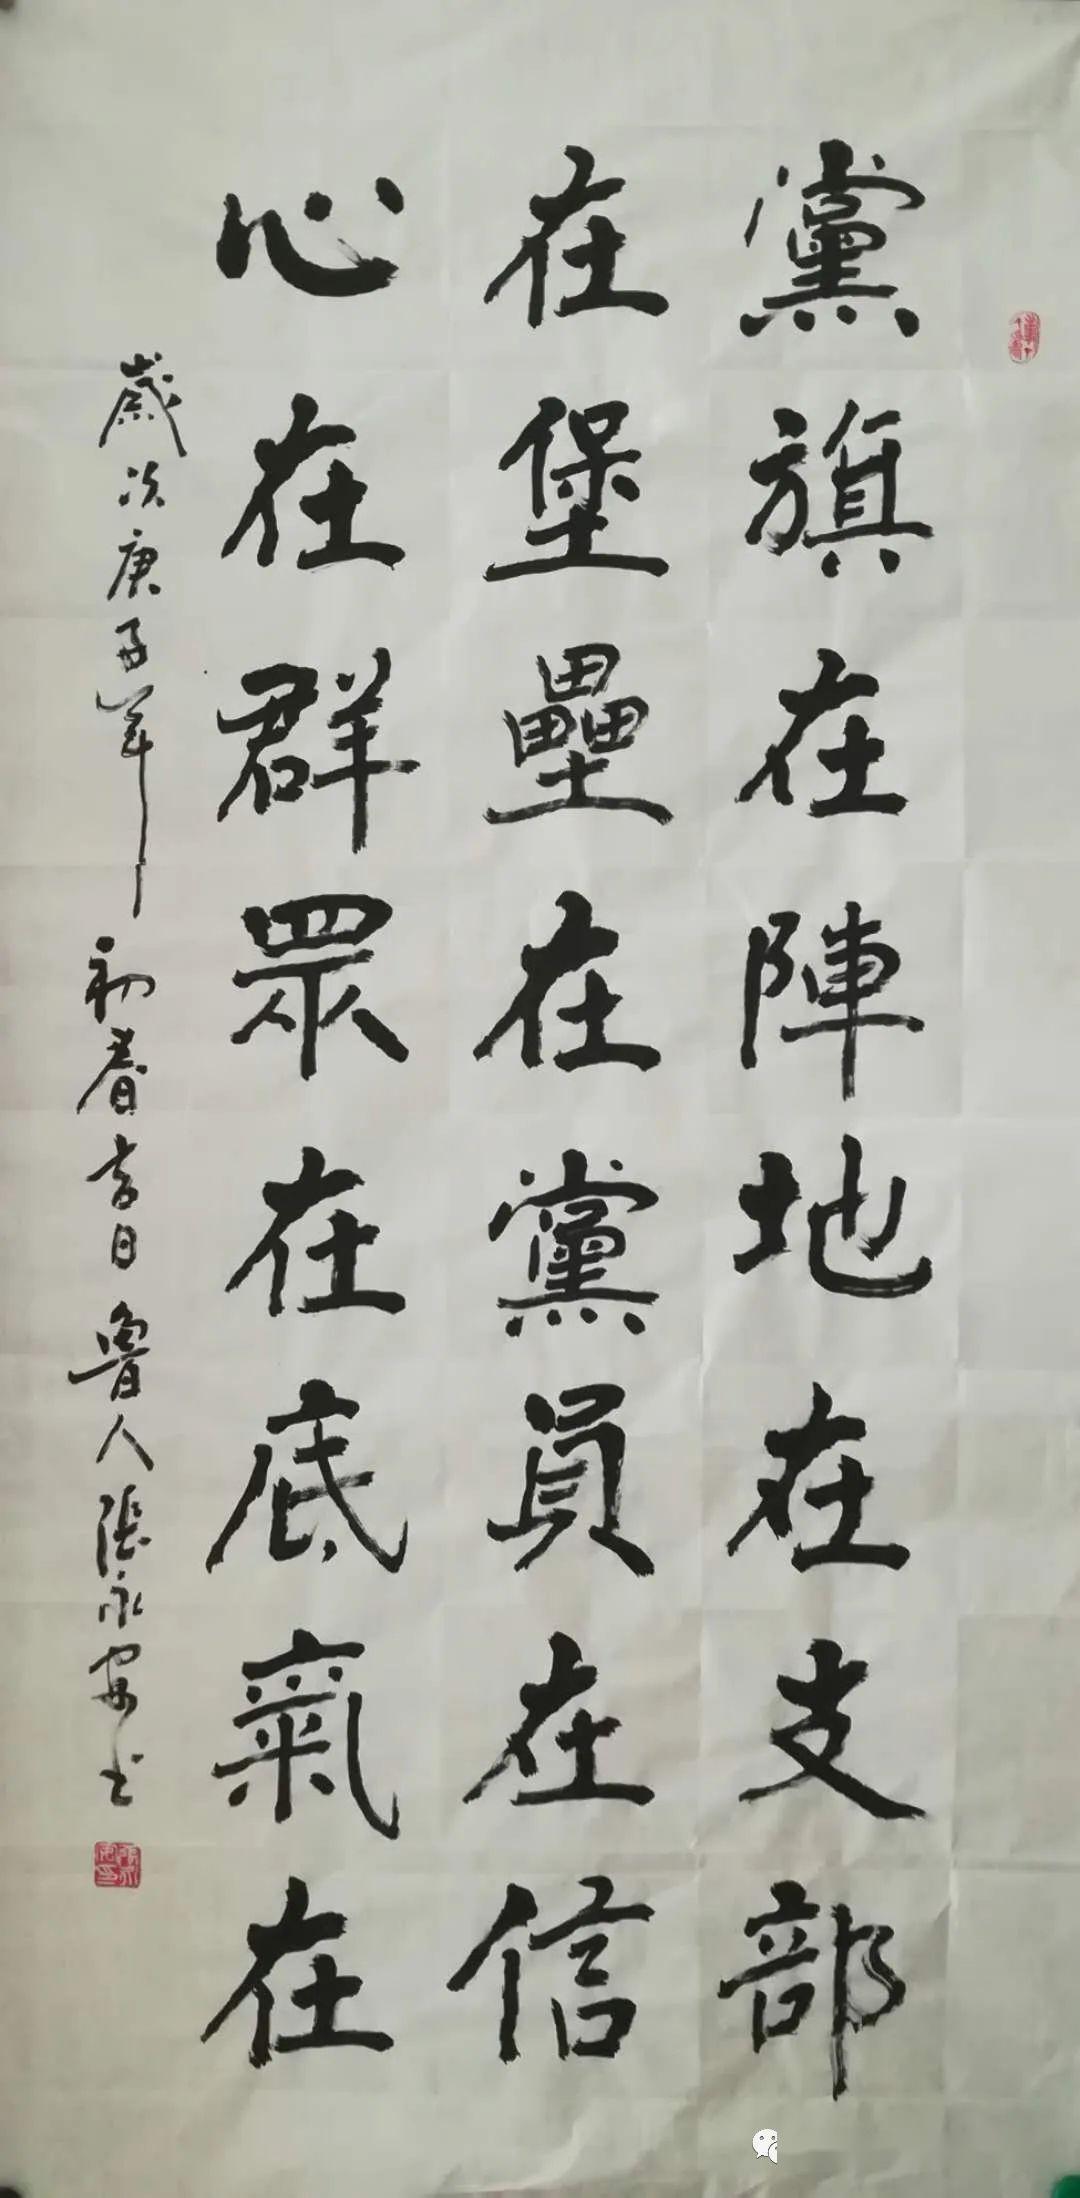 黨旗在陣地在支部
在堡壘在黨員在信
心在群眾在底氣在
歲次庚子年初春吉日魯人張永安书